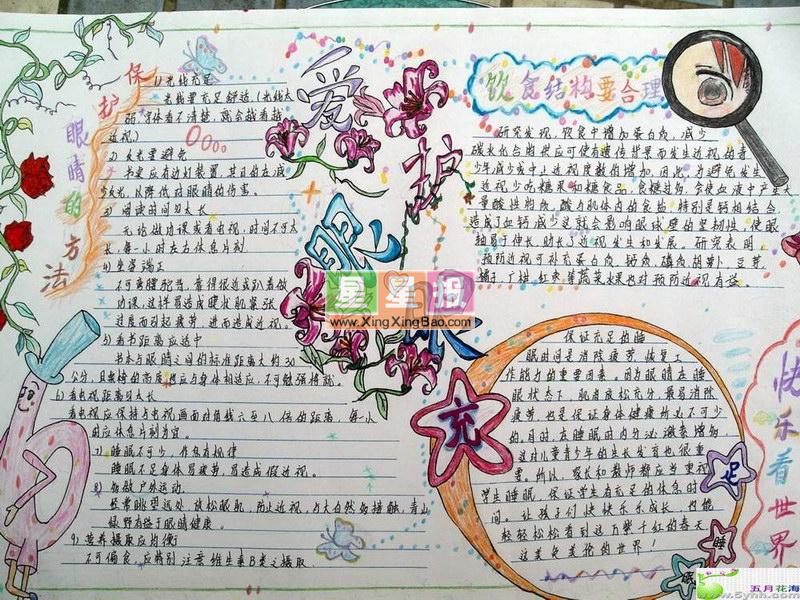 保护
眼睛的方法
1) 光线充足
光线要充足舒适(光线太
弱,字体看不清楚,就会越看越
近视)
2) 反光要避免
书桌应有边灯装置,其目的在减
少反光,以降低对眼睛的伤害。
3) 阅读时间勿太长
无论做功课或看电视,时间不可太
长,每一小时左右休息片刻
4) 坐姿端正
不可弯腰驼背,靠得很近或趴着做
功课,这样易造成睫状肌紧张
过度而引起疲劳,进而造成近视。
5) 看书距离应适中
书本与眼睛之间的标准距离大约30
公分,且桌椅的高度也应与身体相适应,不可勉强将就。
6) 看电视距离勿太长
看电视应保持与电视画面对角线六至八倍的距离,每小
时应休息片刻为宜。
7) 睡眠不可少,作息有规律
睡眠不足身体易疲劳,易造成假近视。
8) 多做户外运动
经常眺望远处,放松眼肌,防止近视,与大自然多接触,青山
绿野有益于眼睛健康。
9) 营养摄取应均衡
不可偏食,应特别注意维生素B类之摄取。
爱护
眼
星星报
www.XingXingBao.com
饮食结构要合理
研究发现,饮食中增加蛋白质,减少
碳水化合物供应可使有遗传背景而发生近视的青
少年减少或中止近视度数的增加。因此,为避免发生
近视少吃糖果和糖食品,食糖过物,会使血液中产生大
量酸性物质,酸与肌体内的食盐,特别是钙相结合
造成了血钙减少这就会影响眼球壁的坚韧性,使眼
轴易于伸长,助长了近视发生和发展。研究表明,
预防近视可补充蛋白质,钙质,磷质,胡萝卜,豆芽
橘子,广柑,红枣等蔬菜水果也对预防近视有益
充足睡眠
保证充足的睡
眠时间是消除疲劳,恢复工
作能力的重要因素。因为眼睛在睡
眠状态下,肌肉放松充分,最易消除
疲劳,也是保证身体健康所必不可少
的,同时,在睡眠时内分泌激素增多
这对儿童青少年的生长发育也很重
要。所以,家长和教师都应当重视
学生睡眠,保证学生有充足的休息时
间。让孩子们快快乐乐成长,也能
轻轻松松看到这万紫千红的春天
这美兔美伦的世界!
快乐看世界
五月花海
www.5yhh.com